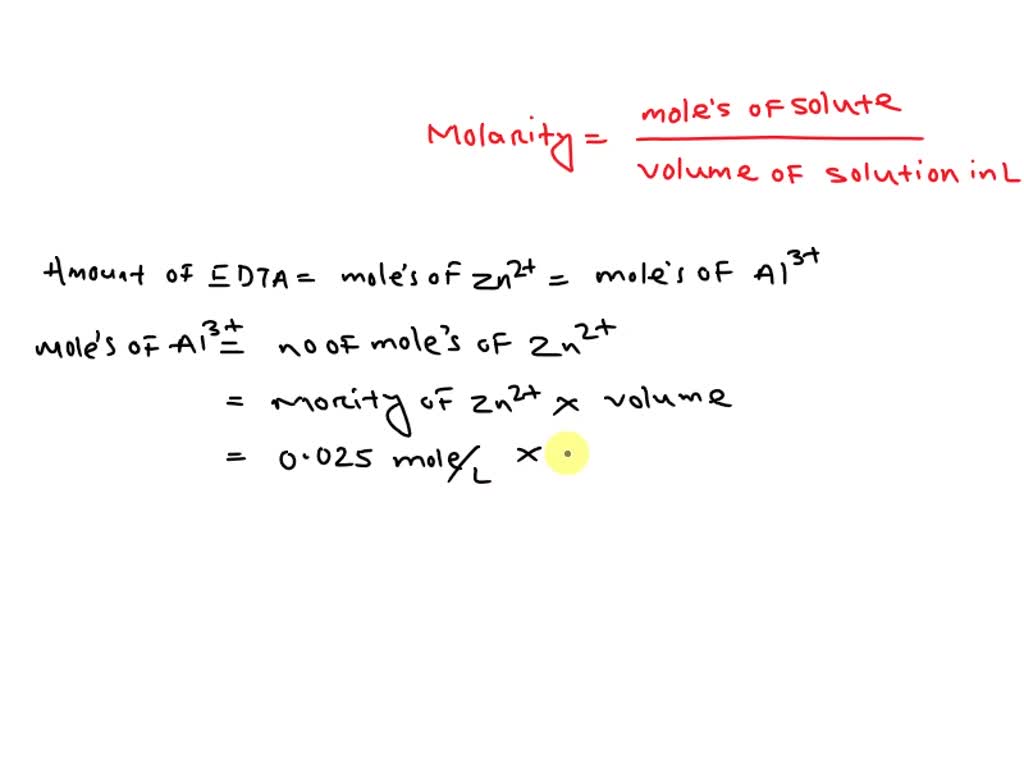 Molarity = mole's of solute
volume of solution in L
Amount of EDTA = mole's of Zn²⁺ = mole's of Al³⁺
mole's of Al³⁺ = no of mole's of Zn²⁺
= mority of Zn²⁺ × volume
= 0.025 mole/L ×